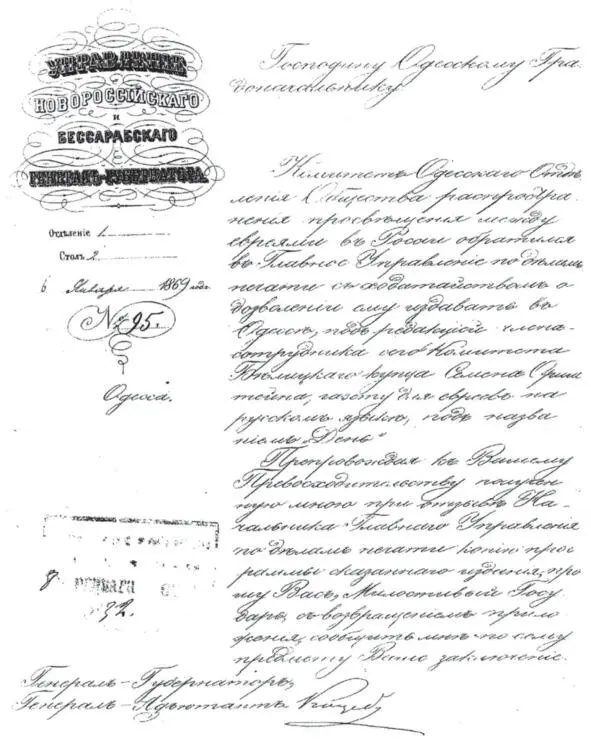 УПРАВЛЕНІЕ
НОВОРОССІЙСКАГО
И
БЕССАРАБСКАГО
ГЕНЕРАЛЪ-ГУБЕРНАТОРА.
Отдѣленіе 1
Столъ 2.
6 Января 1869 года.
№ 95.
Одесса.
Господину Одесскому Гра
доначальнику
Комитетъ Одесскаго Отдѣ
ленія Общества распростра
ненія просвѣщенія между
евреями въ Россіи обратился
въ Главное Управленіе по дѣламъ
печати съ ходатайствомъ о
дозволеніи ему издавать въ
Одессѣ, подъ редакціей члена-
сотрудника сего Комитета
купца Семена Орнш
тейна, газету для евреевъ на
русскомъ языкѣ, подъ назва
ніемъ „День"
Препровождая къ Вашему
Превосходительству получен
ную мною при отзывѣ На-
чальника Главнаго Управленія
по дѣламъ печати копію прог
раммы сказаннаго изданія, про
шу Васъ, Милостивый Госу
дарь, съ возвращеніемъ прило
женія, сообщить мнѣ по сему
предмету Ваше заключеніе.
8 ЯНВАРЯ
32.
Генералъ-Губернаторъ,
Генералъ-Адъютантъ